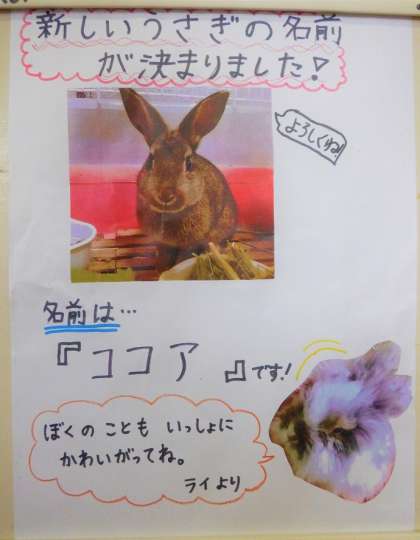 新しいうさぎの名前
が決まりました!
よろしくね!
名前は…
『ココア』です!
ぼくのことも いっしょに
かわいがってね。
ライより